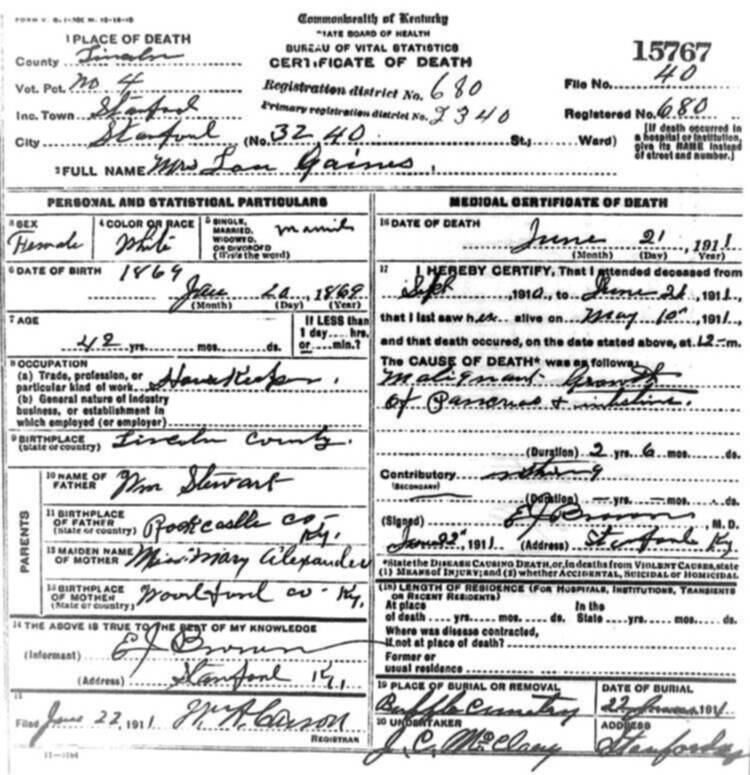 Commonwealth of Kentucky
STATE BOARD OF HEALTH
BUREAU OF VITAL STATISTICS
CERTIFICATE OF DEATH
15767
1 PLACE OF DEATH
County Lincoln
Vot. Pct. No 4
Inc. Town Stanford
City Stanford (No. 3240 St.; Ward)
Registration district No. 680
Primary registration district No. 2340
File No. 40
Registered No. 680
[If death occurred in
a hospital or institution,
give its NAME instead
of street and number.]
2 FULL NAME Mrs Lou Gaines.
PERSONAL AND STATISTICAL PARTICULARS
3 SEX
Female
4 COLOR OR RACE
White
5 SINGLE,
MARRIED,
WIDOWED,
OR DIVORCED
(Write the word)
6 DATE OF BIRTH 1869
Jan 20, 1869
(Month) (Day) (Year)
7 AGE
42 yrs. mos. ds.
If LESS than
1 day hrs.
or min.?
8 OCCUPATION
(a) Trade, profession, or
particular kind of work House Keeper.
(b) General nature of industry
business, or establishment in
which employed (or employer)
9 BIRTHPLACE
(State or country) Lincoln County.
PARENTS
10 NAME OF
FATHER Wm Stewart
11 BIRTHPLACE
OF FATHER
(State or country) Rockcastle co- Ky.
12 MAIDEN NAME
OF MOTHER Miss Mary Alexander
13 BIRTHPLACE
OF MOTHER
(State or country) Woodford co- Ky.
14 THE ABOVE IS TRUE TO THE BEST OF MY KNOWLEDGE
(Informant) E J Brown
(Address) Stanford Ky.
15
Filed June 22, 1911 Carson
REGISTRAR
MEDICAL CERTIFICATE OF DEATH
16 DATE OF DEATH
June 21, 1911
(Month) (Day) (Year)
17 I HEREBY CERTIFY, That I attended deceased from
Sept 1910, to June 21, 1911,
that I last saw her alive on May 10", 1911,
and that death occurred, on the date stated above, at 12-m.
The CAUSE OF DEATH* was as follows:
Malignant Growth
of Pancreas & intestine.
(Duration) 2 yrs. 6 mos. ds.
Contributory
(SECONDARY)
(Duration) yrs. mos. ds.
(Signed) E J Brown, M. D.
June 22", 1911 (Address) Stanford Ky
*State the DISEASE CAUSING DEATH, or, in deaths from VIOLENT CAUSES, state
(1) MEANS OF INJURY; and (2) whether ACCIDENTAL, SUICIDAL or HOMICIDAL
(18) LENGTH OF RESIDENCE (FOR HOSPITALS, INSTITUTIONS, TRANSIENTS
OR RECENT RESIDENTS)
At place
of death yrs. mos. ds.
In the
State yrs. mos. ds.
Where was disease contracted,
if not at place of death?
Former or
usual residence
19 PLACE OF BURIAL OR REMOVAL
DATE OF BURIAL
Cemetery
22 1911
20 UNDERTAKER
J. C. McClary
ADDRESS
Stanford